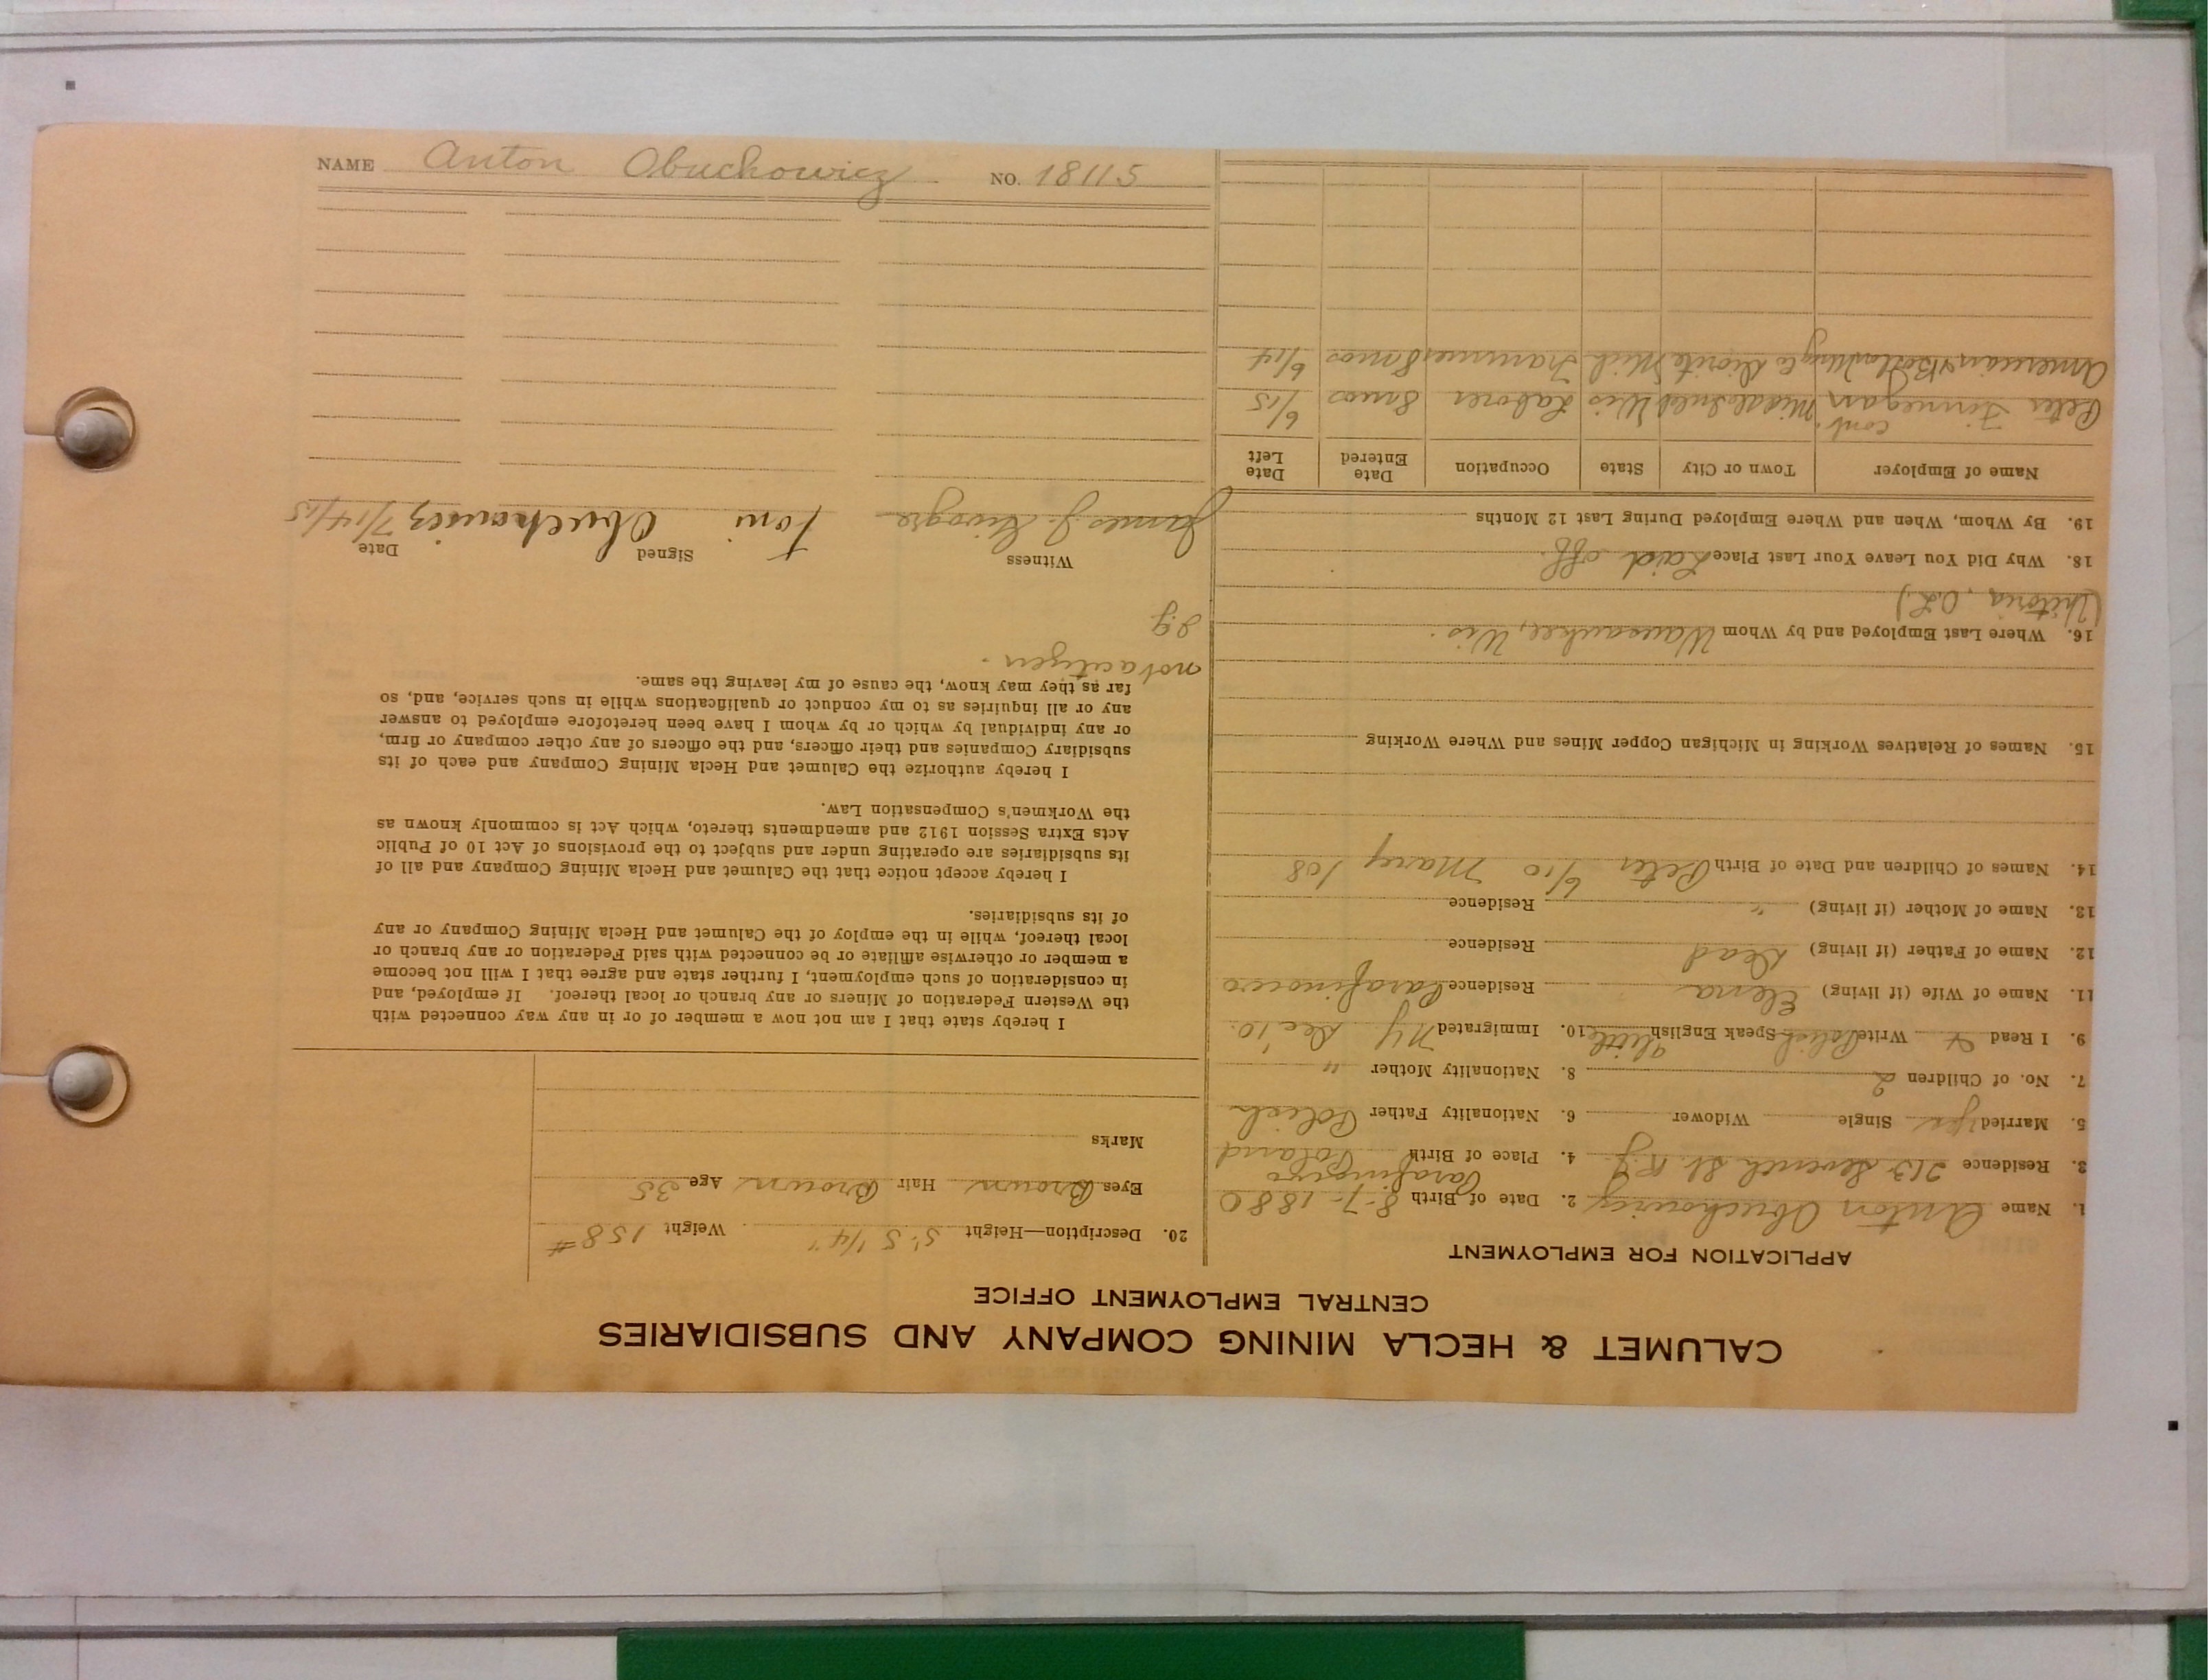 CALUMET & HECLA MINING COMPANY AND SUBSIDIARIES
CENTRAL EMPLOYMENT OFFICE
APPLICATION FOR EMPLOYMENT
1. Name Anton Obuchowicz 2. Date of Birth 8-7-1880
3. Residence 213 Seventh St. 4. Place of Birth Poland
5. Married yes Single Widower 6. Nationality Father Polish
7. No. of Children 2 8. Nationality Mother "
9. I Read & Write Polish Speak English little 10. Immigrated NY Dec '10.
11. Name of Wife (if living) Elena Residence
12. Name of Father (if living) Dead Residence
13. Name of Mother (if living) " Residence
14. Names of Children and Date of Birth Peter 6/10 Mary /08
15. Names of Relatives Working in Michigan Copper Mines and Where Working
16. Where Last Employed and by Whom Wausaukee, Wis.
(Victoria, O.L.)
18. Why Did You Leave Your Last Place Laid off.
19. By Whom, When and Where Employed During Last 12 Months
Name of Employer Town or City State Occupation Date Entered Date Left
Peter Finnegan cont. Wis Laborer 8 mos 6/15
American & Boston Mng Co Diorite Mich Trammer 8 mos 6/14
20. Description—Height 5' 5 1/4" Weight 158 #
Eyes Brown Hair Brown Age 35
Marks
I hereby state that I am not now a member of or in any way connected with
the Western Federation of Miners or any branch or local thereof. If employed, and
in consideration of such employment, I further state and agree that I will not become
a member or otherwise affiliate or be connected with said Federation or any branch or
local thereof, while in the employ of the Calumet and Hecla Mining Company or any
of its subsidiaries.
I hereby accept notice that the Calumet and Hecla Mining Company and all of
its subsidiaries are operating under and subject to the provisions of Act 10 of Public
Acts Extra Session 1912 and amendments thereto, which Act is commonly known as
the Workmen's Compensation Law.
I hereby authorize the Calumet and Hecla Mining Company and each of its
subsidiary Companies and their officers, and the officers of any other company or firm,
or any individual by which or by whom I have been heretofore employed to answer
any or all inquiries as to my conduct or qualifications while in such service, and, so
far as they may know, the cause of my leaving the same.
not a citizen.
J.G.
Witness Signed Date
James J. Toni Obuchowicz 7/14/15
NAME Anton Obuchowicz NO. 18115